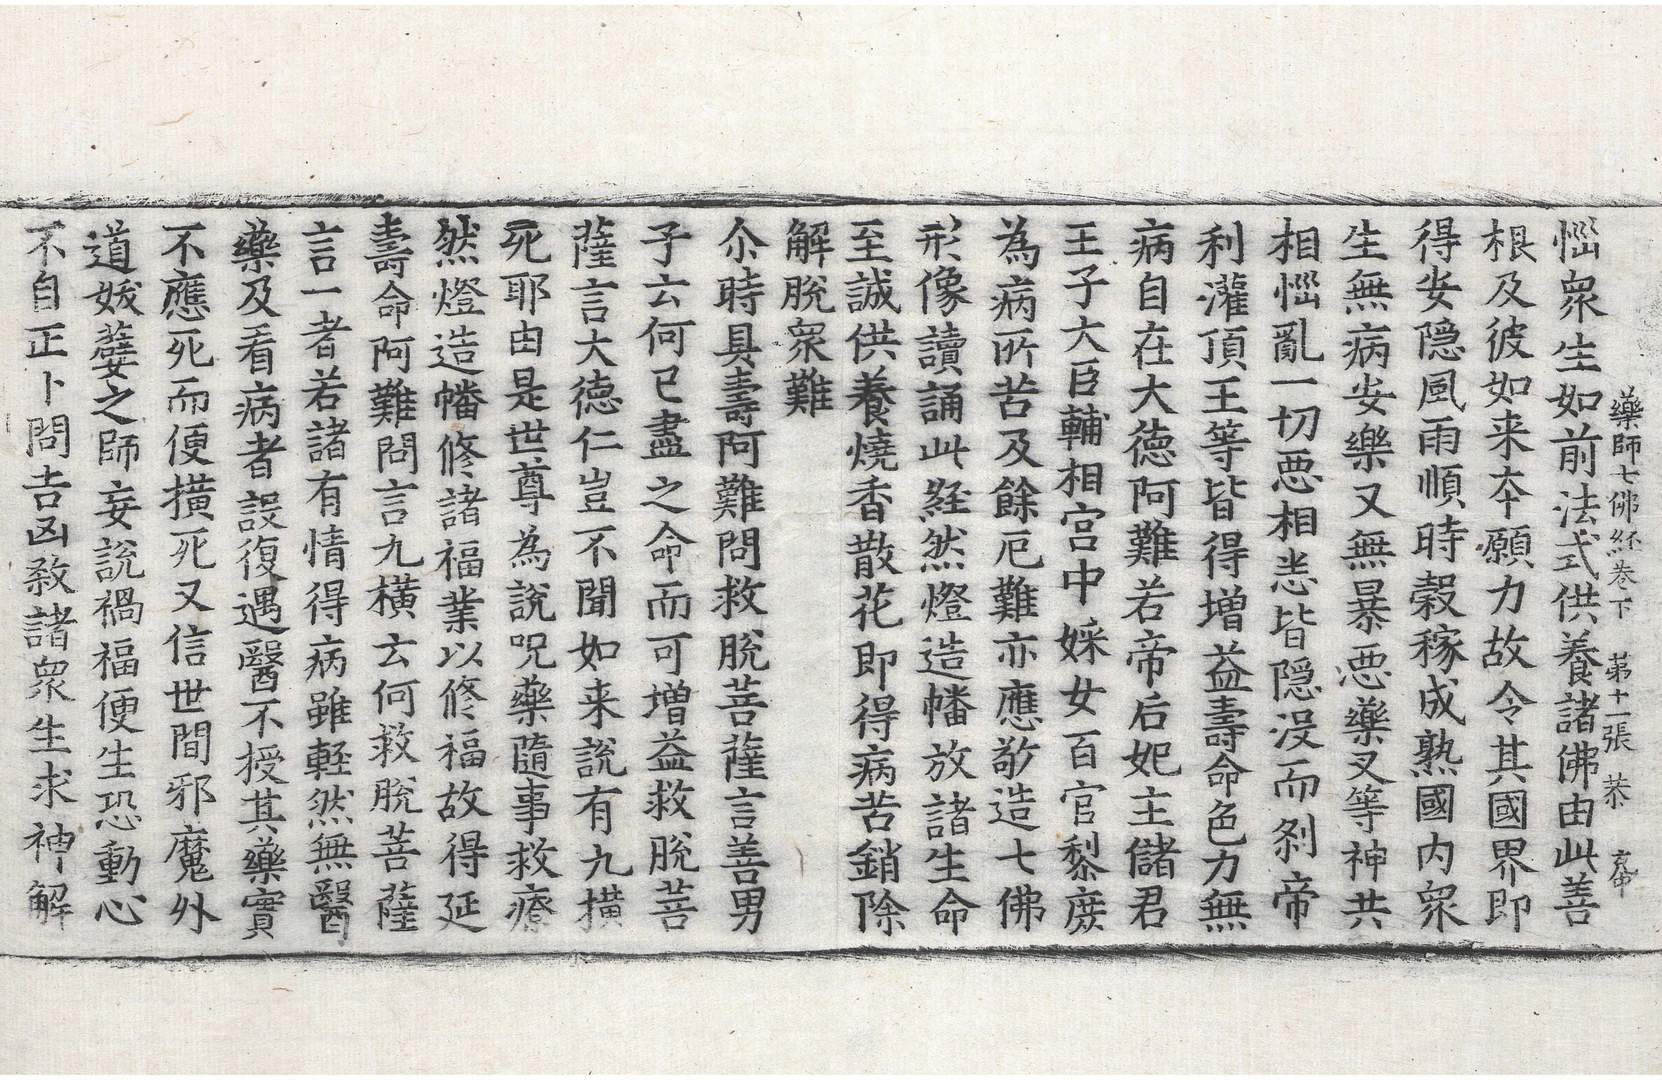 藥師七佛経卷下　第十一張　恭
惱衆生如前法式供養諸佛由此善
根及彼如来夲願力故令其國界即
得安隱風雨順時穀稼成熟國内衆
生無病安樂又無暴惡藥叉等神共
相惱亂一切惡相悉皆隱没而刹帝
利灌頂王等皆得增益壽命色力無
病自在大德阿難若帝后妃主儲君
王子大臣輔相宮中婇女百官黎庶
為病所苦及餘厄難亦應敬造七佛
形像讀誦此経然燈造幡放諸生命
至誠供養燒香散花即得病苦銷除
解脫衆難
尒時具壽阿難問救脫菩薩言善男
子云何已盡之命而可增益救脫菩
薩言大德仁豈不聞如来說有九橫
死耶由是世尊為說呪藥隨事救療
然燈造幡修諸福業以修福故得延
壽命阿難問言九橫云何救脫菩薩
言一者若諸有情得病雖軽然無醫
藥及看病者設復遇醫不授其藥實
不應死而便橫死又信世間邪魔外
道妖孽之師妄說禍福便生恐動心
不自正卜問吉凶殺諸衆生求神解